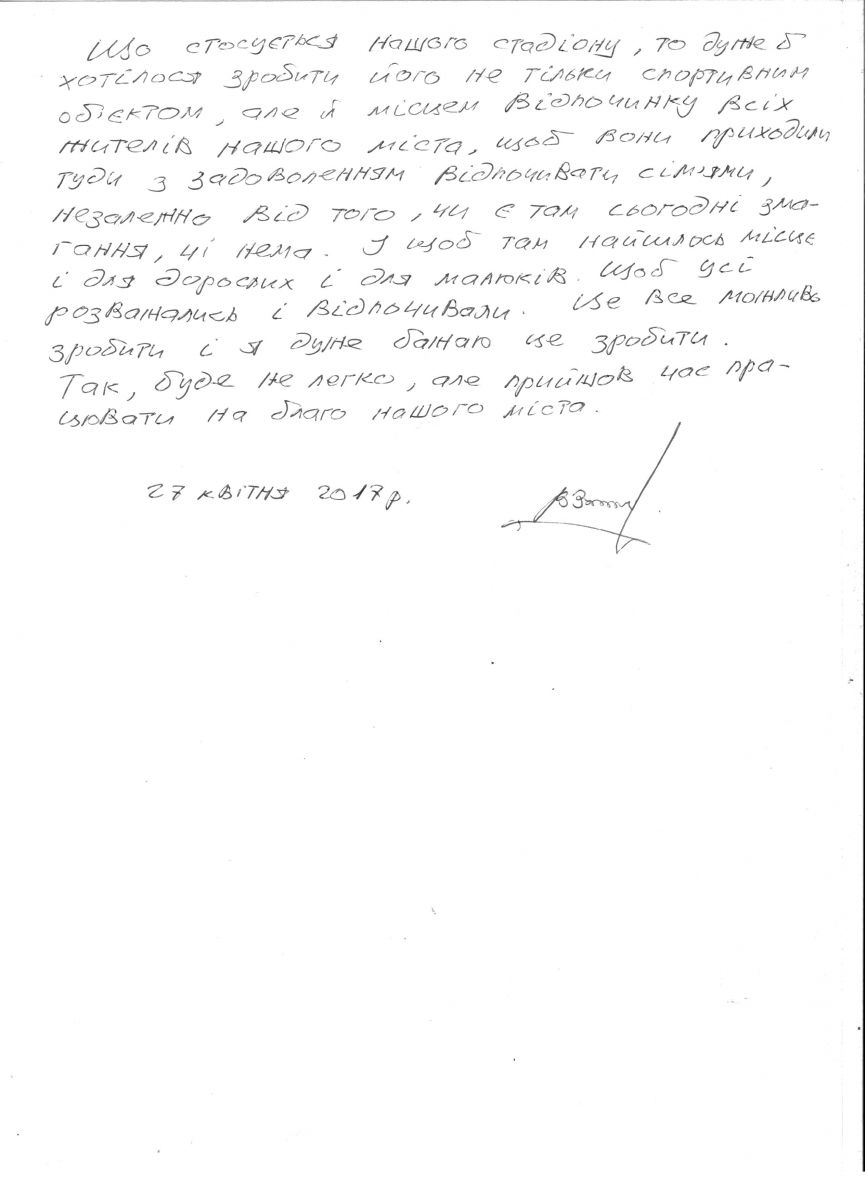 Що стосується нашого стадіону, то дуже б
хотілося зробити його не тільки спортивним
об'єктом, але й місцем відпочинку всіх
жителів нашого міста, щоб вони приходили
туди з задоволенням відпочивати сім'ями,
незалежно від того, чи є там сьогодні зма-
гання, чі нема. І щоб там найшлось місце
і для дорослих і для малюків. Щоб усі
розважались і відпочивали. Це все можливо
зробити і я дуже бажаю це зробити.
Так, буде не легко, але прийшов час пра-
цювати на благо нашого міста.
27 квітня 2017 р.